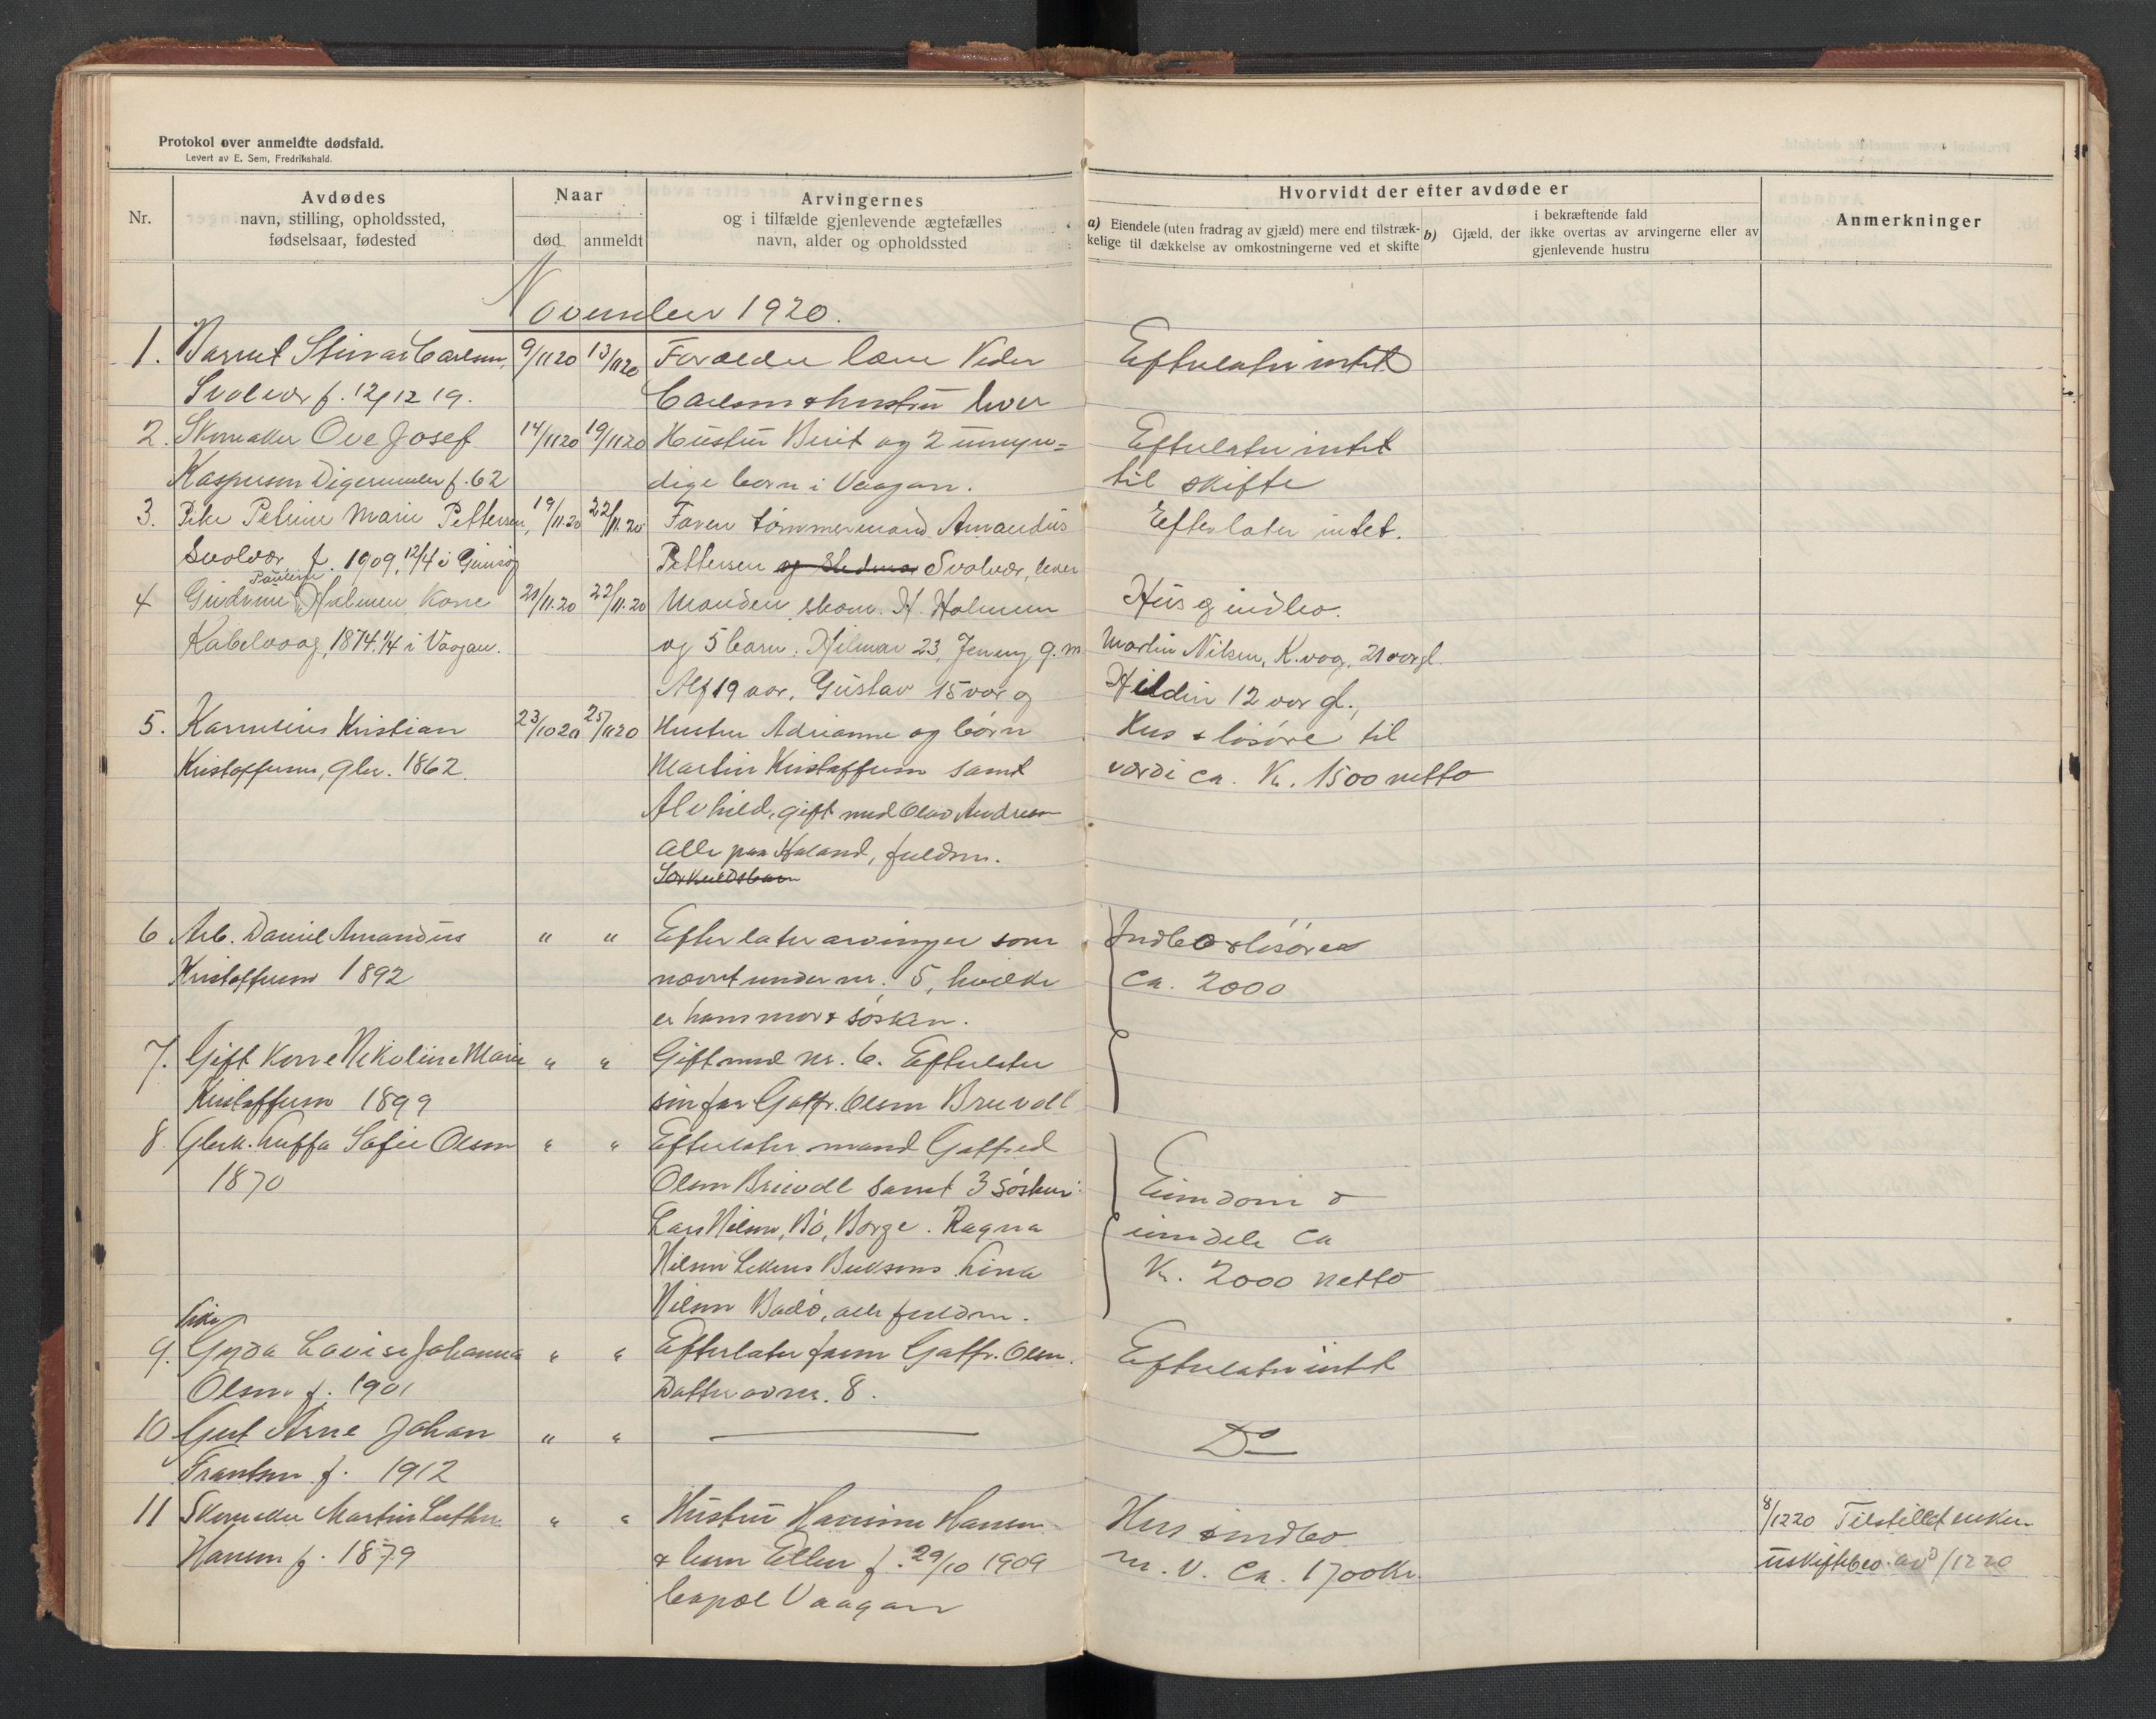 Protokol over anmeldte dødsfald.
Levert av E. Sem, Fredrikshald.
Nr.
Avdødes
navn, stilling, opholdssted,
fødselsaar, fødested
Naar
død
anmeldt
Arvingernes
og i tilfælde gjenlevende ægtefælles
navn, alder og opholdssted
Hvorvidt der efter avdøde er
a) Eiendele (uten fradrag av gjæld) mere end tilstræk-
kelige til dækkelse av omkostningerne ved et skifte
i bekræftende fald
b) Gjæld, der ikke overtas av arvingerne eller av
gjenlevende hustru
Anmerkninger
November 1920.
1. Barnet Carlsen, 9/1120 13/1120 Forældre Peder Efterlater intet
Svolvær f. 12/12 19. Carlsen & hustru lever
2. Skomaker Ove Josef 14/1120 19/1120 Hustru Berit og 2 umyn= Efterlater intet
Kaspersen Digermulen f. 62 dige børn i Vaagan. til skifte
3. Pike Petrine Marie Pettersen, 19/11.20 22/11.20 Faren tømmermand Amandus Efterlater intet.
Svolvær f. 1909, 12/4 i Gimsøy Pettersen og Svolvær, lever
4 Gudrun Pauline Holmen kone 21/11.20 22/11.20 Manden, skom. H. Holmen Hus og indbo.
Kabelvaag, 1874. 1/4 i Vaagan. og 5 barn. Hilmar 23, Jenny g. m Martin Nilsen, K.vaag, 21 aar gl.
Alf 19 aar, Gustav 15 aar og Hildur 12 aar gl.,
5. Kornelius Kristian 23/1020 25/1120 Hustru Adrianne og børn Hus & løsøre til
Kristoffersen, gbr. 1862. Martin Kristoffersen samt værdi ca. Kr. 1500 netto
Alvhild, gift med Olav Andresen
alle paa Høland, fuldm.
Særkuldsbarn
6 Arb. Daniel Amandus " " Efterlater arvinger som Indbo & løsøre
Kristoffersen 1892 nævnt under nr. 5, hvilke ca. 2000
er hans mor & søsken.
7. Gift kone Nikoline Marie " " Gift med nr. 6. Efterlater
Kristoffersen 1899 sin far Gotfr. Olsen Bruvoll
8. Sofie Olsen " " Efterlater mand Gotfred
1870 Olsen Bruvoll samt 3 søsken: Eiendom &
Lars Nilsen, Bø, Borge. Ragna eiendele ca
Nilsen Lina Kr. 2000 netto
Nilsen Bodø, alle fuldm.
Pike
9. Gyda Lovise Johanna " " Efterlater faren Gotfr. Olsen. Efterlater intet
Olsen f. 1901 Datter av nr. 8.
10 Gut Arne Johan " " Do
Frantsen f. 1912
11 Skomaker Martin Luther " " Hustru Hansine Hansen Hus & indbo 8/1220 Tilstillet enken
Hansen f. 1879 & barn Ellen f. 29/10 1909 m. v. ca. 1700 Kr. uskiftebev. av /1220
Vaagan